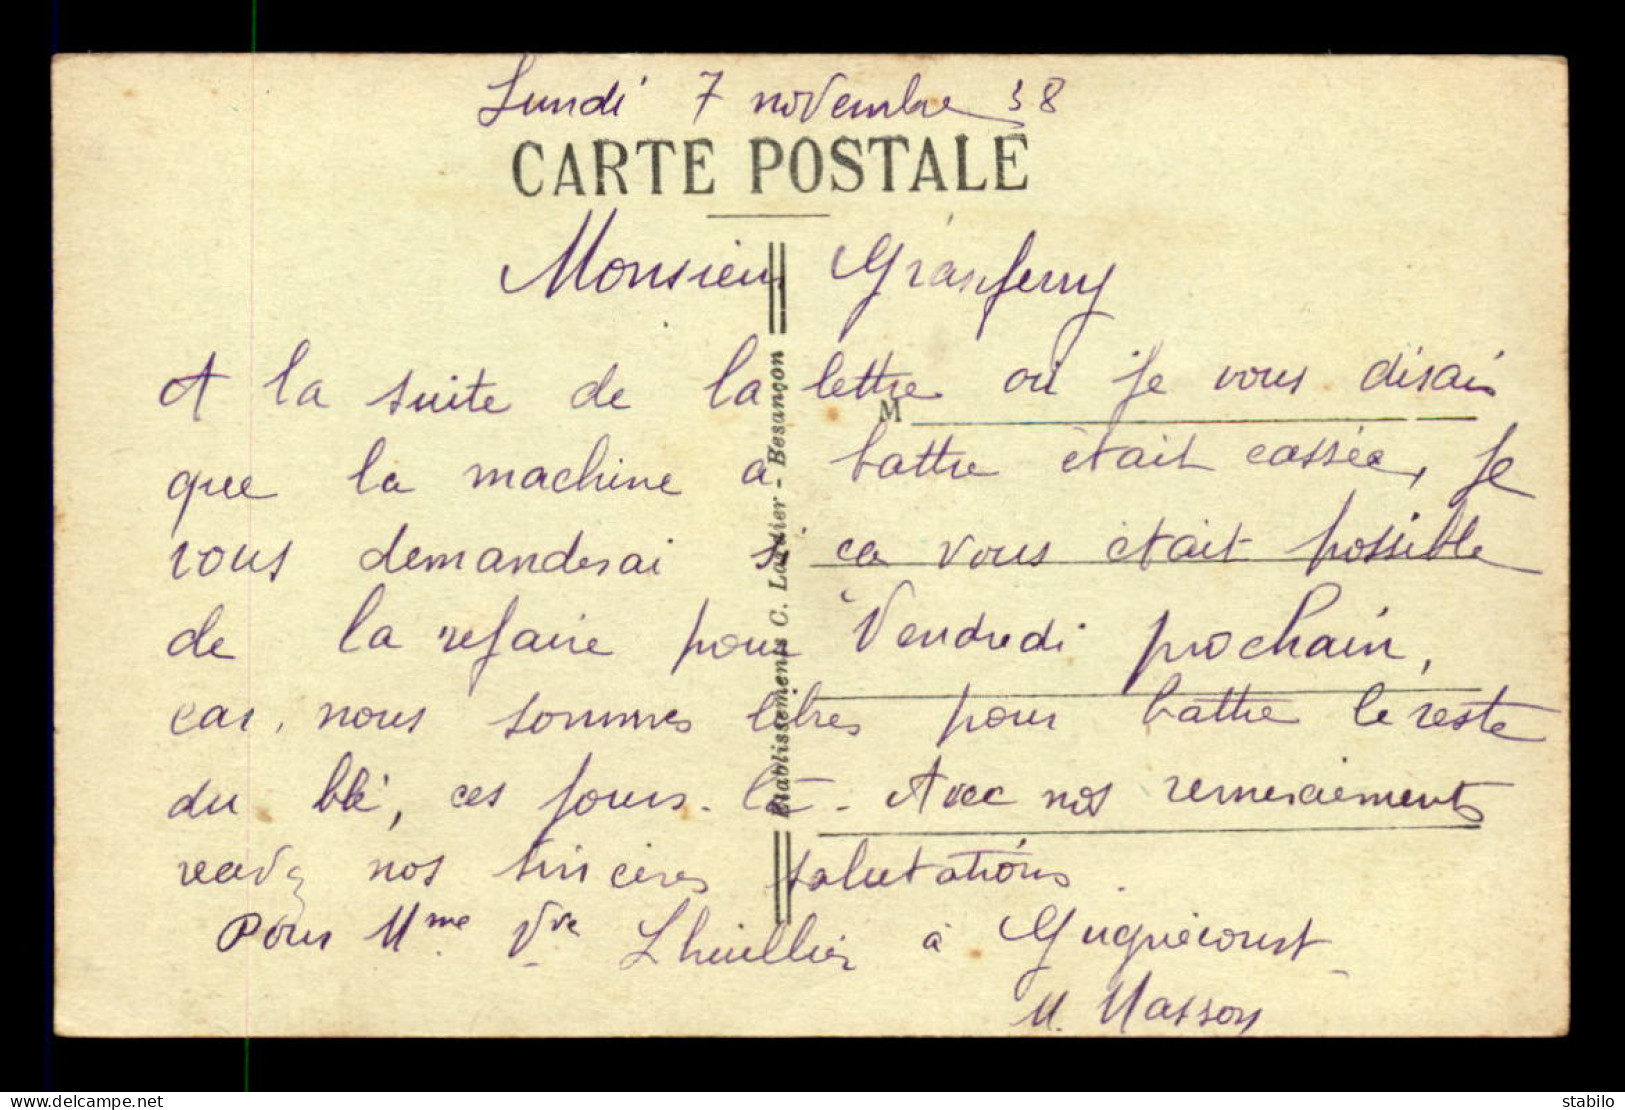 Lundi 7 novembre 38
CARTE POSTALE
Monsieur Gransferry
A la suite de la lettre où je vous disais
M
que la machine a battre était cassée, je
vous demanderai si ca vous était possible
de la refaire pour Vendredi prochain,
car, nous sommes libres pour battre le reste
du blé, ces jours-là. Avec nos remerciements
recevez nos sincères salutations.
Pour Mme Vve Lhuillier à Gugnécourt
M. Masson
Etablissements C. Lardier - Besançon
stabilo